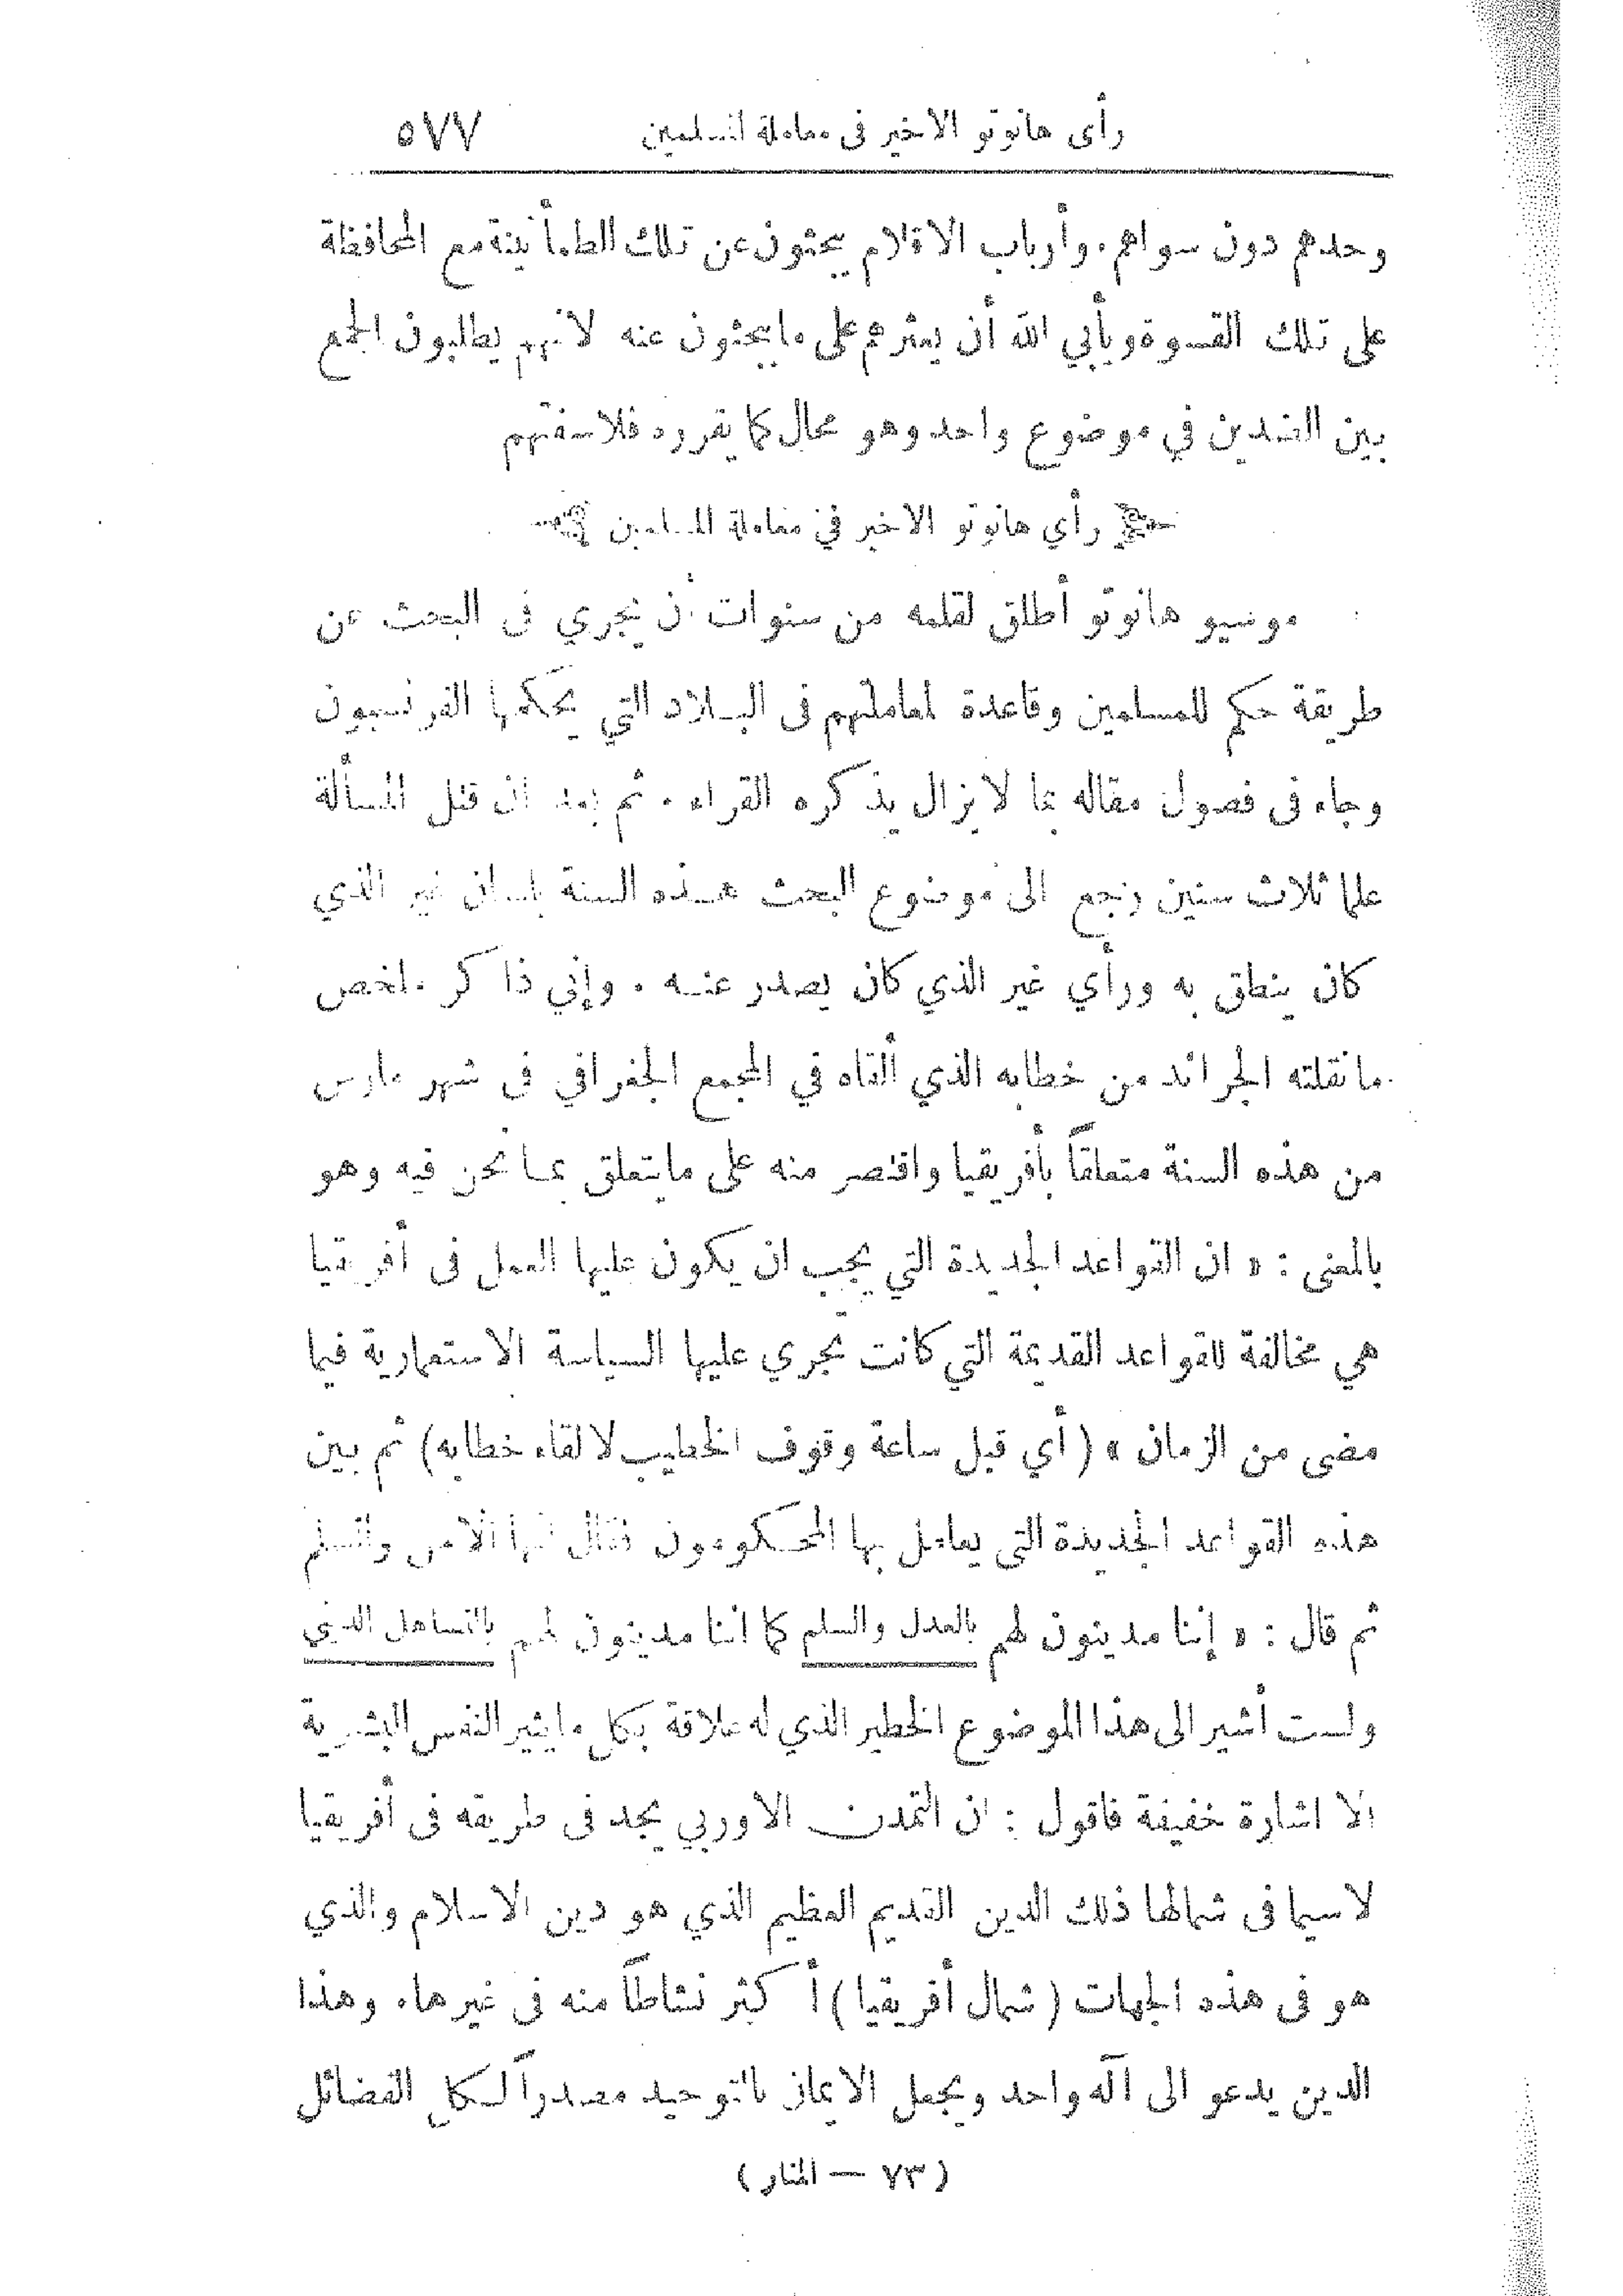 رأى هانوتو الاخير فى معاملة المسلمين ٥٧٧
وحدهم دون سواهم. وأرباب الاقلام يبحثون عن تلك الطمأنينة مع المحافظة
على تلك القسوة ويأبي الله أن يعثرهم على ما يبحثون عنه لانهم يطلبون الجمع
بين الضدين في موضوع واحد وهو محال كما يقرره فلاسفتهم
رأي هانوتو الاخير في معاملة المسلمين
موسيو هانوتو أطلق لقلمه من سنوات أن يجري فى البحث عن
طريقة حكم للمسلمين وقاعدة لمعاملتهم فى البلاد التي يحكمها الفرنسيون
وجاء فى فصول مقاله بما لا يزال يذكره القراء. ثم بعد ان قتل المسألة
علما ثلاث سنين رجع الى موضوع البحث هذه السنة بلسان غير الذي
كان ينطق به ورأي غير الذي كان يصدر عنه. وإني ذا كر ملخص
ما نقلته الجرائد من خطابه الذي ألقاه في المجمع الجغرافي فى شهر مارس
من هذه السنة متعلقاً بأفريقيا واقتصر منه على ما يتعلق بما نحن فيه وهو
بالمعنى: « ان القواعد الجديدة التي يجب ان يكون عليها العمل فى أفريقيا
هي مخالفة للقواعد القديمة التي كانت تجري عليها السياسة الاستعمارية فيما
مضى من الزمان » (أي قبل ساعة وقوف الخطيب لالقاء خطابه) ثم بين
هذه القواعد الجديدة التي يعامل بها المحكومون فقال انها الأمن والسلم
ثم قال: « إننا مدينون لهم بالعدل والسلم كما اننا مدينون لهم بالتساهل الديني
ولست أشير الى هذا الموضوع الخطير الذي له علاقة بكل ما يثير النفس البشرية
الا اشارة خفيفة فاقول: ان التمدن الاوربي يجد فى طريقه فى أفريقيا
لا سيما فى شمالها ذلك الدين القديم العظيم الذي هو دين الاسلام والذي
هو فى هذه الجهات (شمال أفريقيا) أكثر نشاطاً منه فى غيرها. وهذا
الدين يدعو الى آله واحد ويجعل الايمان بالتوحيد مصدراً لكل الفضائل
(٧٣ — المنار)